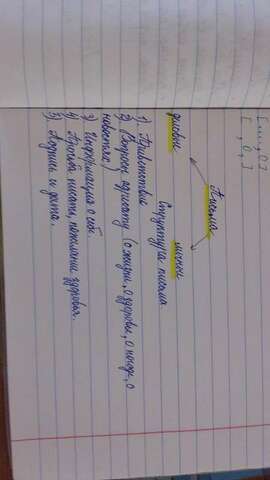 [ un, 0 ]
[ , 0, ]
Письма
деловые личные
Структура письма
1) Приветствие
2) Вопросы адресату (о жизни, о здоровье, о погоде, о
новостях)
3) Информация о себе.
4) Просьба писать, пожелание здоровья.
5) Подпись и дата.